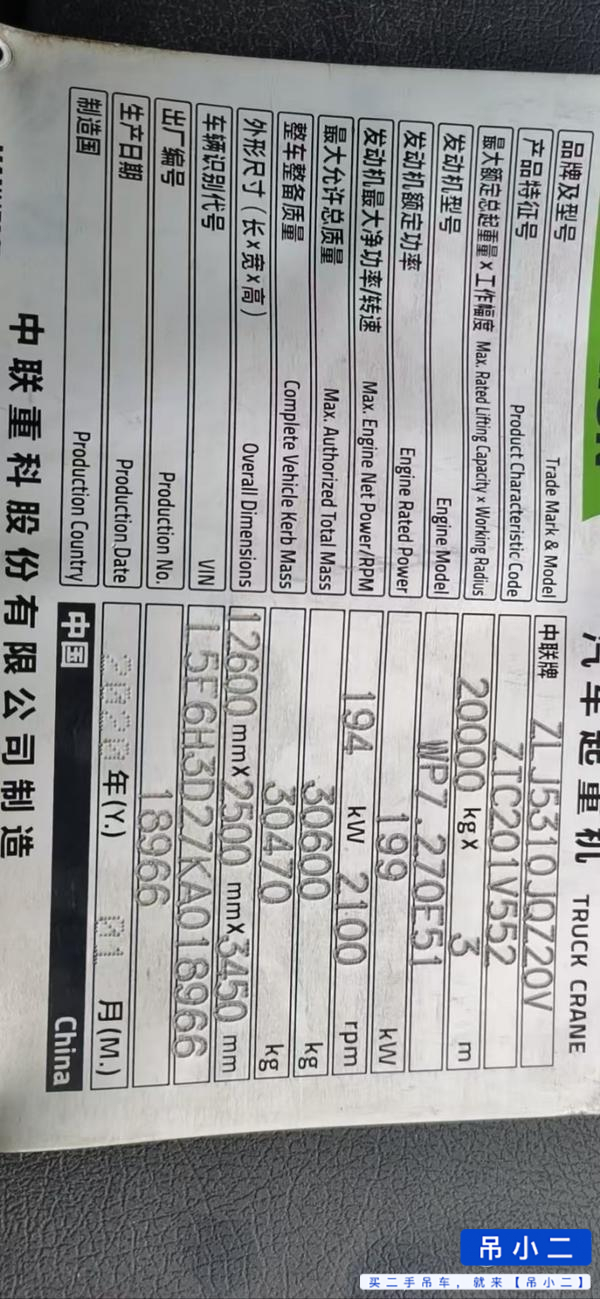 汽车起重机 TRUCK CRANE
品牌及型号 Trade Mark & Model 中联牌 ZLJ5310JQZ20V
产品特征号 Product Characteristic Code ZTC201V552
最大额定总起重量x工作幅度 Max. Rated Lifting Capacity x Working Radius 20000 kg x 3 m
发动机型号 Engine Model WP7.270E51
发动机额定功率 Engine Rated Power 199 kW
发动机最大净功率/转速 Max. Engine Net Power/RPM 194 kW 2100 rpm
最大允许总质量 Max. Authorized Total Mass 30600 kg
整车整备质量 Complete Vehicle Kerb Mass 30470 kg
外形尺寸（长x宽x高） Overall Dimensions 12600 mmX2500 mmX3450 mm
车辆识别代号 VIN L5E6H3D27KA018966
出厂编号 Production No. 18966
生产日期 Production Date 2020 年(Y.) 01 月(M.)
制造国 Production Country 中国 China
中联重科股份有限公司制造
吊小二
买二手吊车，就来【吊小二】